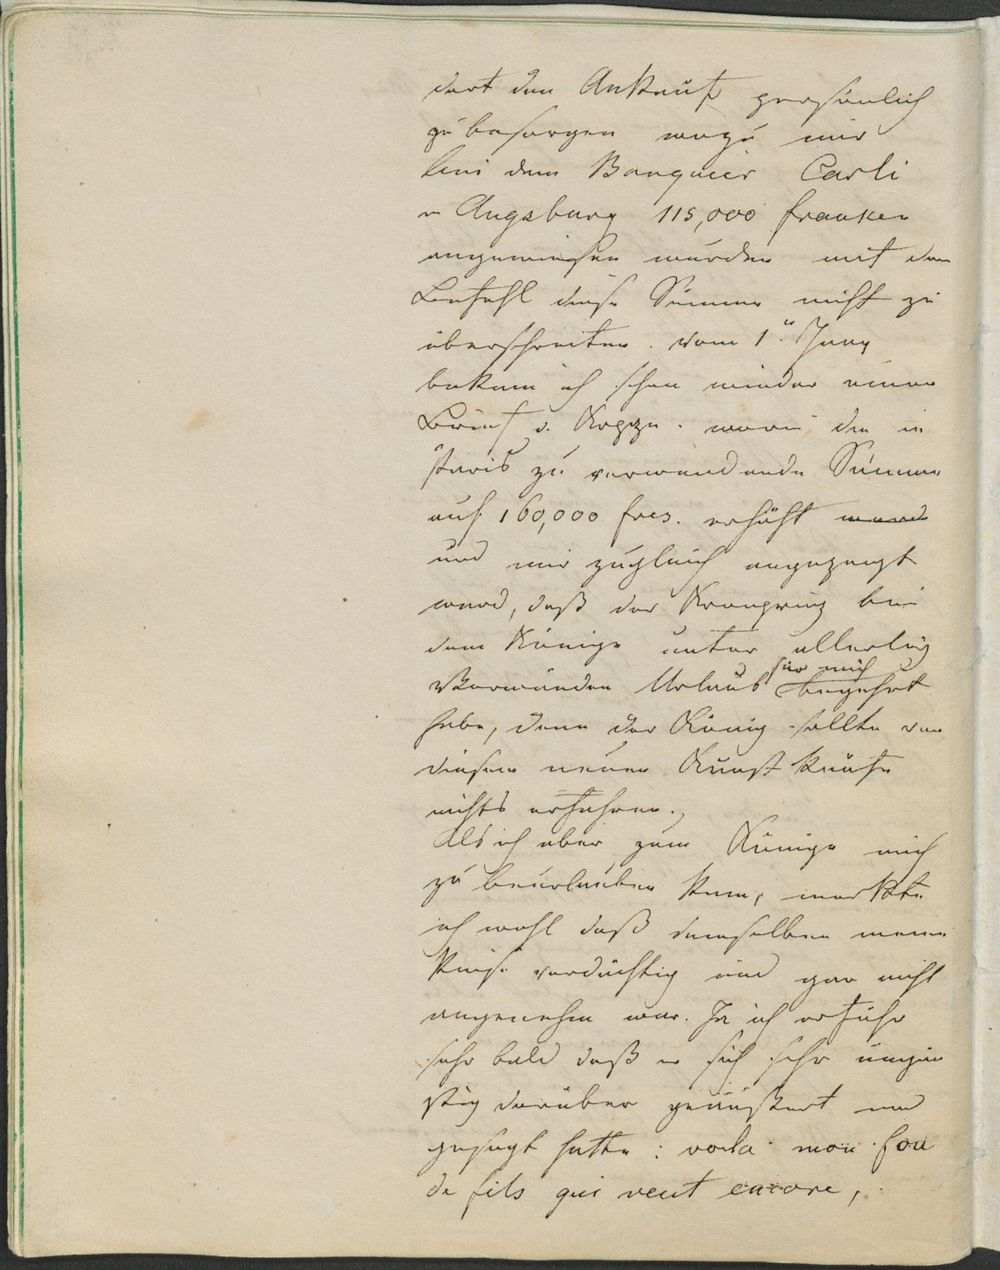 dort den Ankauf persönlich
zu besorgen wozu mir
bei dem Banquier Carli
in Augsburg 115,000 franken
angewiesen wurden mit dem
Befehl diese Summe nicht zu
überschreiten. Vom 1.ⁿ Juny
bekam ich schon wieder einen
Brief v. Kopp. worin die in
Paris zu verwendende Summe
auf 160,000 frcs. erhöht ward
und mir zugleich angezeigt
ward, daß der Kronprinz bei
dem Könige unter allerley
Vorwänden Urlaub für mich begehrt
habe, denn der König sollte von
diesem neuen Kunst käufe
nichts erfahren.
Als ich aber zum Könige mich
zu beurlauben kam, merkte
ich wohl daß demselben meine
Reise verdächtig und gar nicht
angenehm war. Ja ich erfuhr
sehr bald daß er sich sehr ungün
stig darüber geäußert und
gesagt hatte: voila mon fou
de fils qui veut encore,